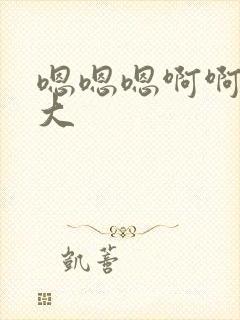 嗯嗯嗯啊啊
大
凯蔷